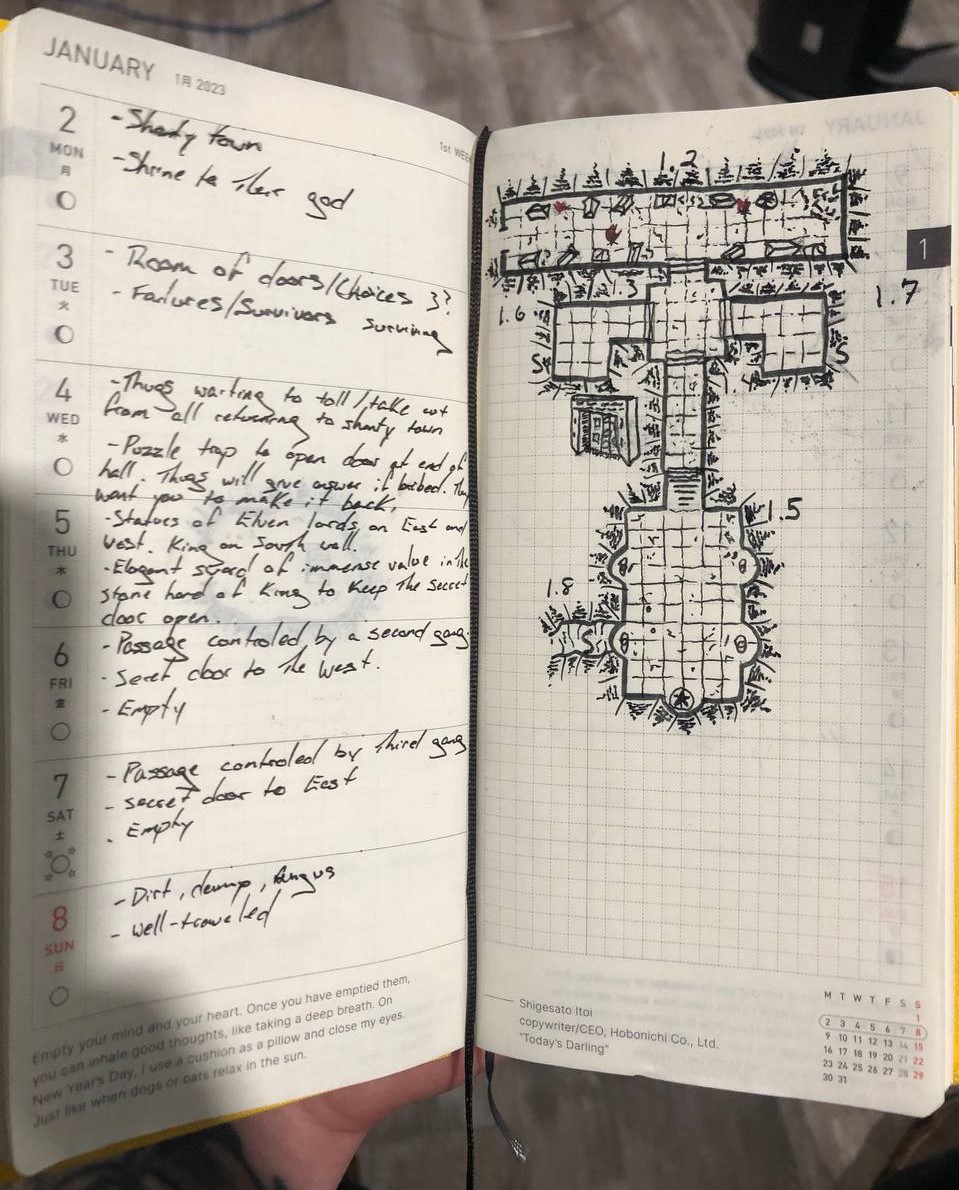 JANUARY 1月 2023
1st WEE
2
MON
月
- Shanty town
- Shrine to their god
3
TUE
火
- Room of doors/Choices 3?
- Failures/Survivors surviving
4
WED
水
- Thugs waiting to toll/take cut
from all returning to shanty town
- Puzzle trap to open door at end of
hall. Thugs will give answer if bribed. They
want you to make it back.
5
THU
木
- Statues of Elven lords on East and
West. King on South wall.
- Elegant sword of immense value in the
stone hand of King to keep the secret
door open.
6
FRI
金
- Passage controled by a second gang
- Secret door to the West.
- Empty
7
SAT
土
- Passage controled by third gang
- secret door to East
- Empty
8
SUN
日
- Dirt, damp, fungus
- well-traveled
Empty your mind and your heart. Once you have emptied them,
you can inhale good thoughts, like taking a deep breath. On
New Year's Day, I use a cushion as a pillow and close my eyes.
Just like when dogs or cats relax in the sun.
1.2
1
1.3
1.6
1.7
S
S
1.4
1.5
1.8
S
Shigesato Itoi
copywriter/CEO, Hobonichi Co., Ltd.
"Today's Darling"
M T W T F S S
1
2 3 4 5 6 7 8
9 10 11 12 13 14 15
16 17 18 19 20 21 22
23 24 25 26 27 28 29
30 31